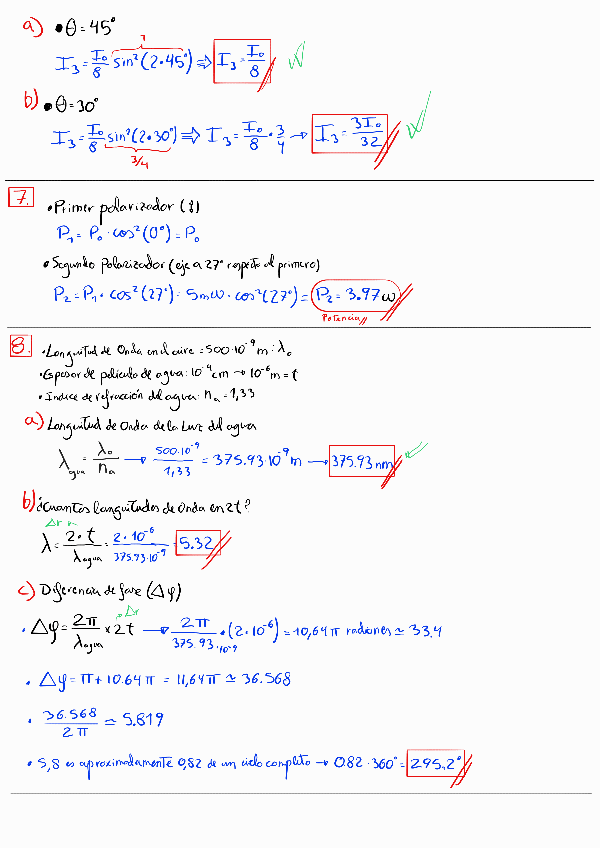 a) • θ = 45°
I₃ = I₀/8 sin²(2·45°) ⇒ I₃ = I₀/8
b) • θ = 30°
I₃ = I₀/8 sin²(2·30°) ⇒ I₃ = I₀/8 · 3/4 → I₃ = 3I₀/32
3/4
7.
• Primer polarizador
P₁ = P₀ · cos²(0°) = P₀
• Segundo Polarizador (eje a 27° respecto al primero)
P₂ = P₁ · cos²(27°) = 5mW · cos²(27°) = P₂ = 3.97 ω
Potencia
8.
• Longuitud de Onda en el aire = 500·10⁻⁹ m : λ₀
• Espesor de pelicula de agua: 10⁻⁴ cm → 10⁻⁶ m = t
• Indice de refracción del agua: nₐ = 1,33
a) Longuitud de Onda de la Luz del agua
λagua = λ₀/nₐ → 500·10⁻⁹/1,33 = 375.93·10⁻⁹ m → 375.93 nm
b) ¿Cuantas longuitudes de Onda en 2t?
λ = 2·t/λagua = 2·10⁻⁶/375.93·10⁻⁹ = 5.32
c) Diferencia de fase (Δφ)
• Δφ = 2π/λagua × 2t → 2π/375.93·10⁻⁹ · (2·10⁻⁶) = 10,64π radianes ≃ 33.4
• Δφ = π + 10.64π = 11,64π ≃ 36.568
• 36.568/2π ≃ 5.819
• 5,8 es aproximadamente 0,82 de un ciclo completo → 0.82 · 360° = 295,2°